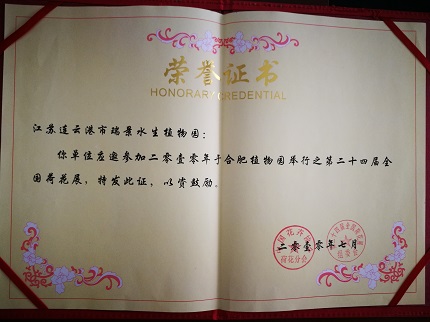 荣誉证书
HONORARY CREDENTIAL
江苏连云港市瑞景水生植物园:
你单位应邀参加二零壹零年于合肥植物园举行之第二十四届全
国荷花展,特发此证,以资鼓励。
二零壹零年七月
荷花分会
组委会